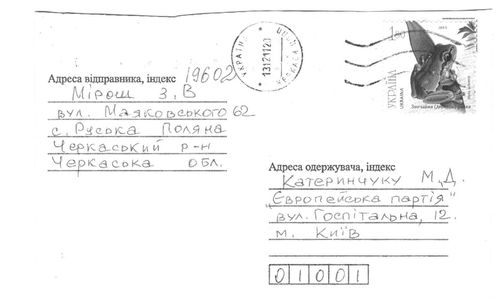 Адреса відправника, індекс 19602
Мірош З, В
вул. Маяковського 62
с. Руська Поляна
Черкаський р-н
Черкаська обл.
УКРАЇНА
131211
УКРАЇНА
UKRAINE
Адреса одержувача, індекс
Катеринчуку М, Д.
"Європейська партія"
вул. Госпітальна, 12.
м. Київ
01001